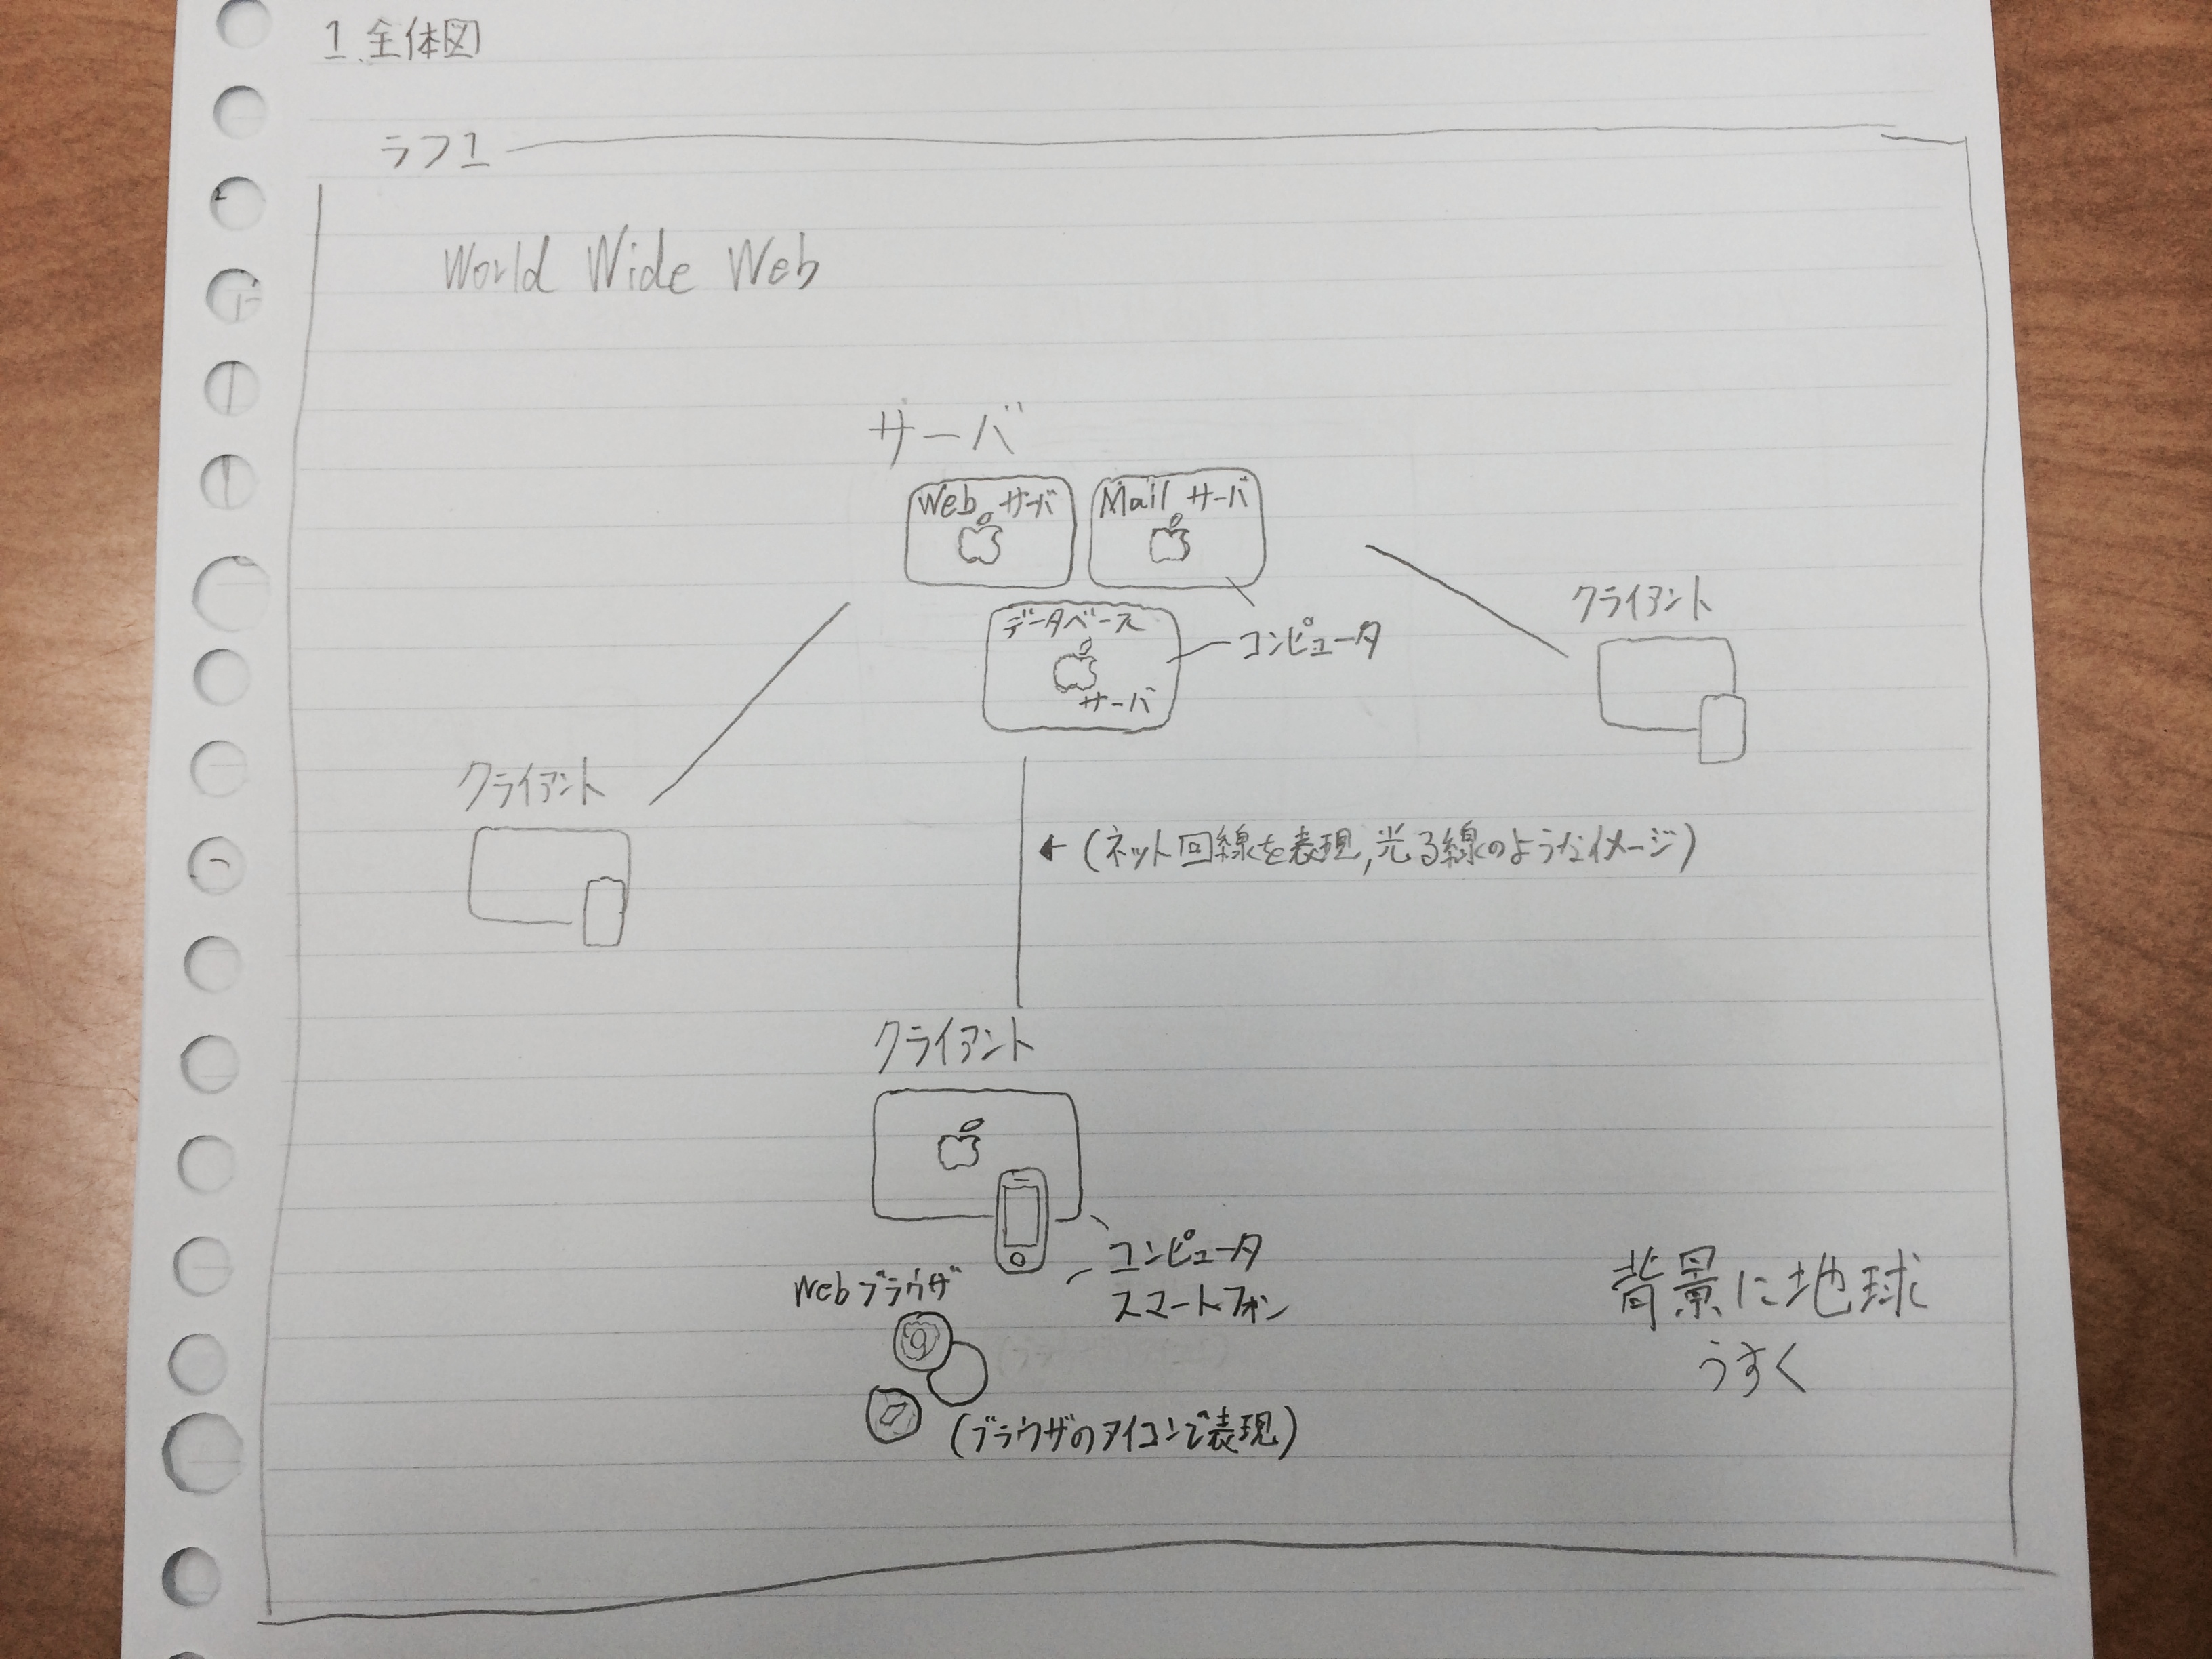 1.全体図
ラフ1
World Wide Web
サーバ
Webサーバ
Mailサーバ
データベース
サーバ
コンピュータ
クライアント
クライアント
←(ネット回線を表現,光る線のようなイメージ)
クライアント
コンピュータ
スマートフォン
Webブラウザ
(ブラウザのアイコンで表現)
背景に地球
うすく